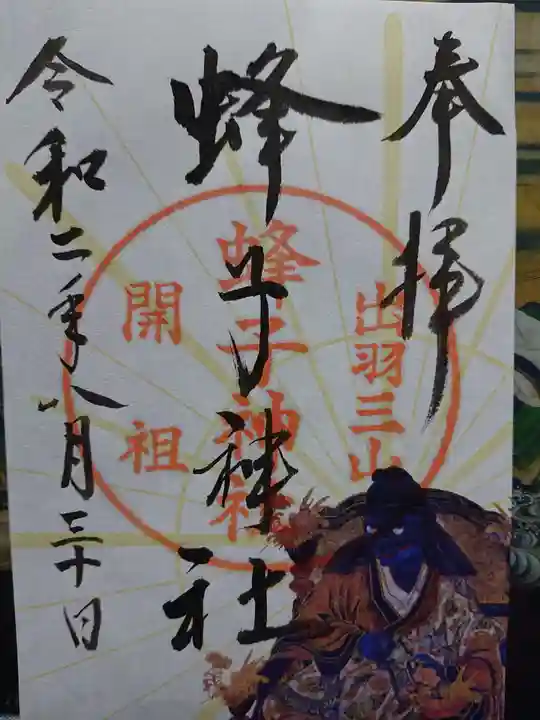 奉拝
出羽三山
蜂子神社
蜂子神社
開祖
令和二年八月三十日